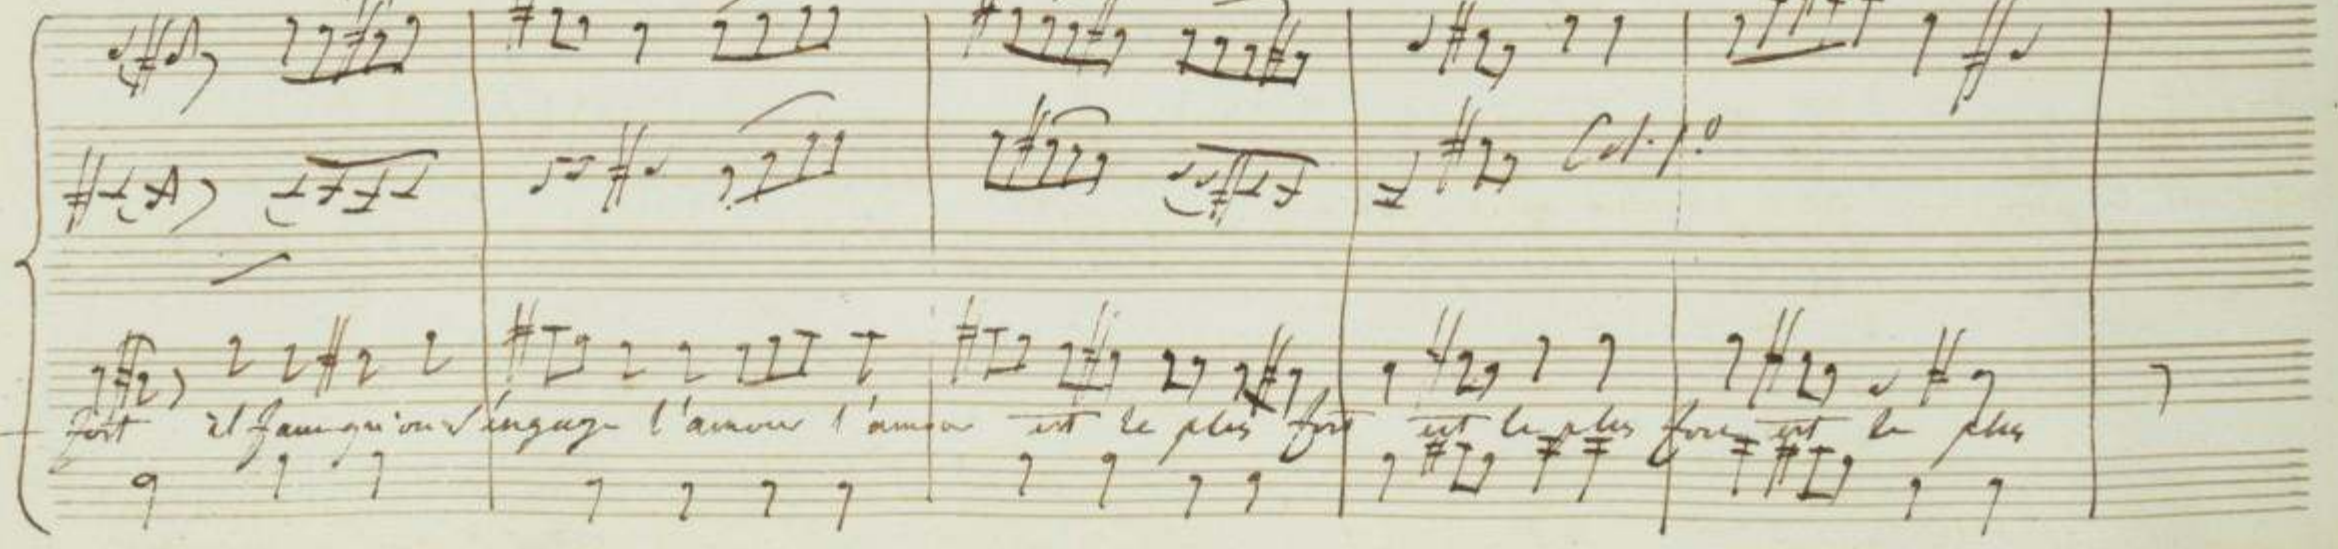 Col. 1º
fort il faut qu'on s'engage l'amour l'amour est le plus fort est le plus fort est le plus